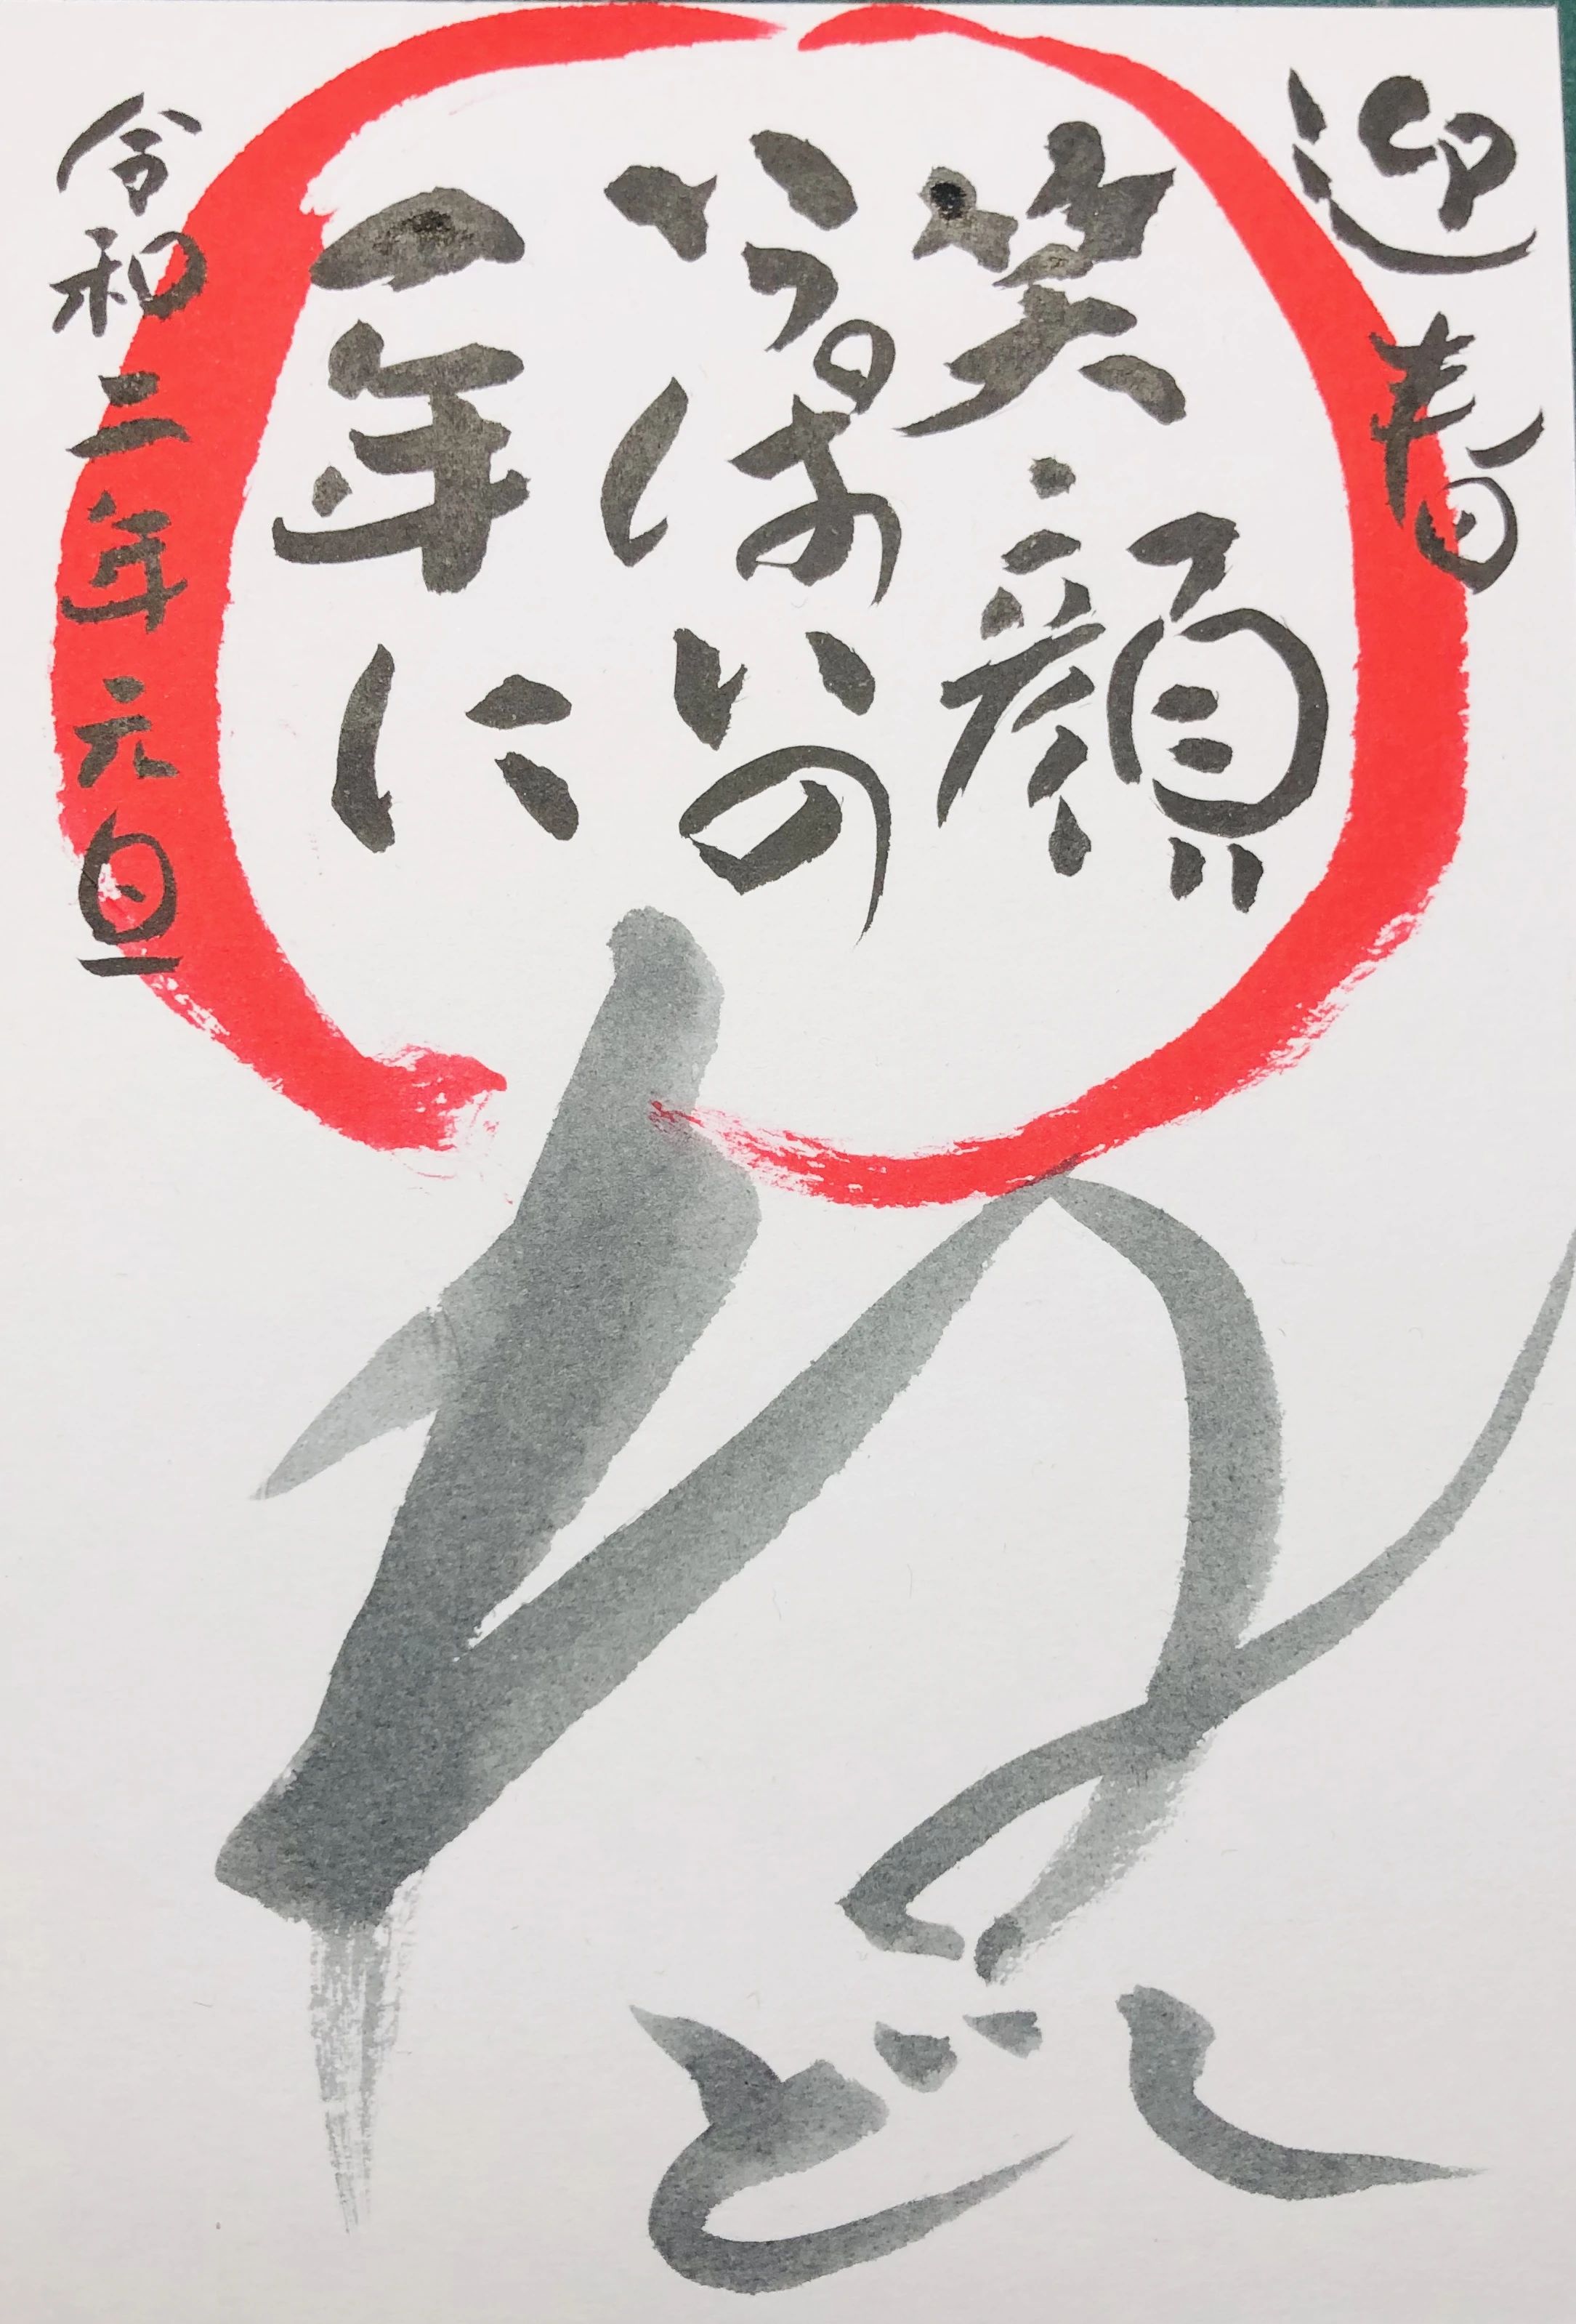 迎春
笑顔
いっぱいの
一年に
令和二年元旦
ね
どし